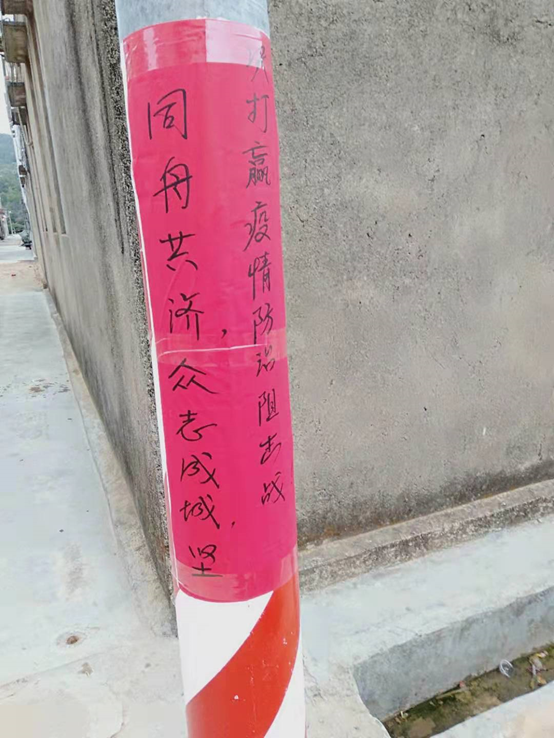 同舟共济，众志成城，坚
决打赢疫情防治阻击战